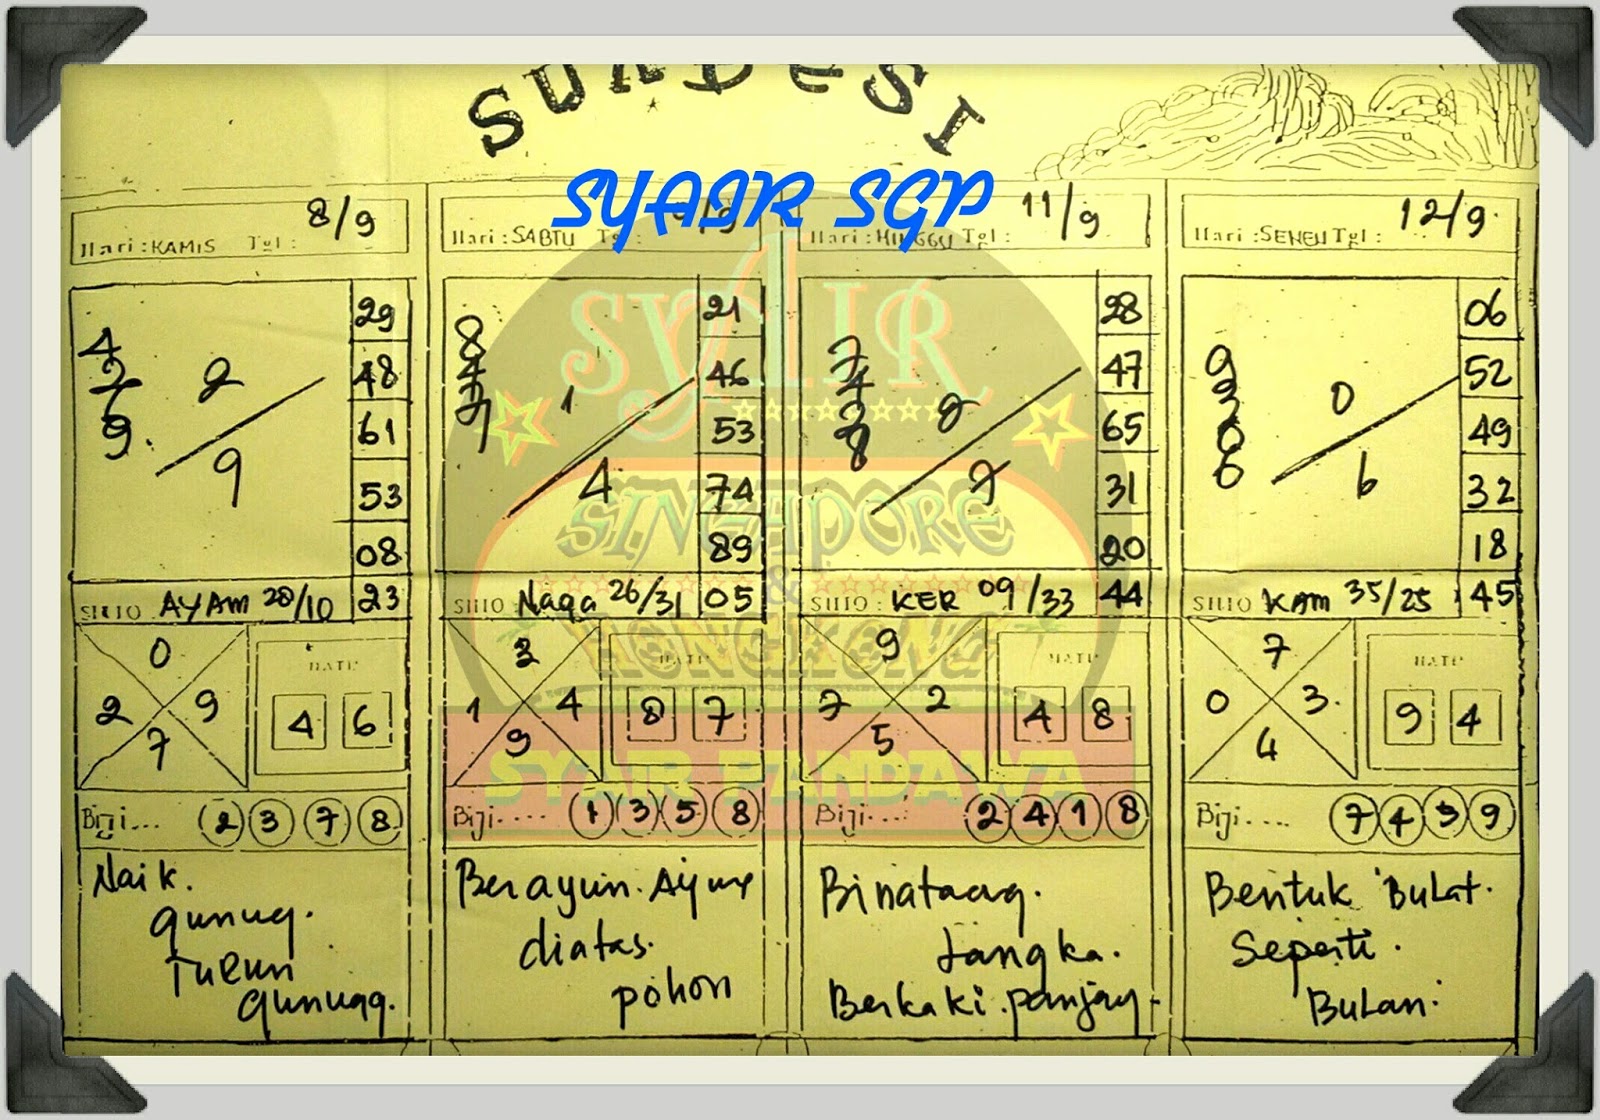 SUNDESI
SYAIR SGP
Hari : KAMIS Tgl : 8/9
4
2
7
9.
2
9
29
48
61
53
08
SHIO : AYAM 28/10 23
0
2 9
7
MATI
4 6
Biji... 2 3 7 8
Naik.
gunug.
Turun
gunuqg.
Hari : SABTU Tgl : /9
8
4
7
1
1
4
21
46
53
74
89
SHIO : Naga 26/31 05
3
1 4
9
MATI
8 7
Biji.... 1 3 5 8
Berayun. Ayun
diatas.
pohon
Hari : MINGGU Tgl : 11/9
7
4
2
8
2
7
28
47
65
31
20
SHIO : KER 09/33 44
9
7 2
5
MATI
4 8
Biji...: 2 4 1 8
Binataag.
Langka.
Berkaki. panjang.
Hari : SENEN Tgl : 12/9.
9
3
2
0
6
0
6
06
52
49
32
18
SHIO KAM 35/25 45
7
0 3.
4
MATI
9 4
Biji.... 7 4 3 9
Bentuk Bulat.
Seperti.
Bulan.
SYAIR
SINGAPORE
&
HONGKONG
SYAIR PANDAWA